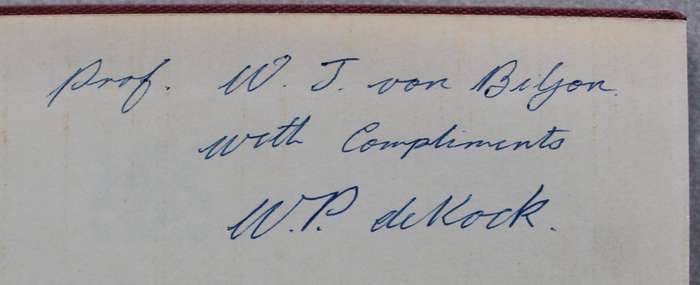 Prof. W. J. von Biljon.
with Compliments
W.P. deKock.